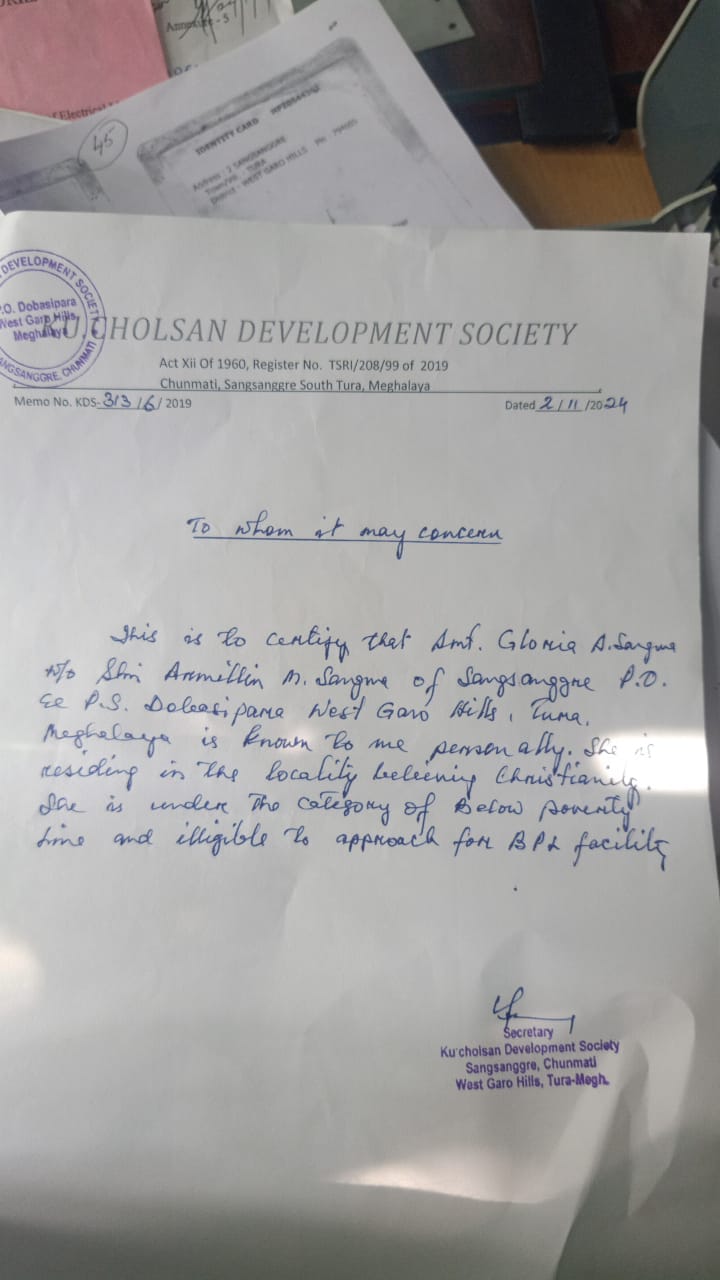 Annexure-5
f Electrical
45
IDENTITY CARD
Address: 2 SANGSANGGRE
Town/Vill. TURA
District - WEST GARO HILLS
DEVELOPMENT SOCIETY
P.O. Dobasipara
West Garo Hills,
Meghalaya
SANGSANGGRE, CHUNMATI
KU'CHOLSAN DEVELOPMENT SOCIETY
Act Xii Of 1960, Register No. TSRI/208/99 of 2019
Chunmati, Sangsanggre South Tura, Meghalaya
Memo No. KDS-313/6/2019
Dated 2/11/2024
To whom it may concern
This is to certify that Smt. Gloria A. Sangma
w/o Shri Armillin M. Sangma of Sangsanggre P.O.
& P.S. Dobasipara West Garo Hills, Tura,
Meghalaya is known to me personally. She is
residing in the locality beliening Christianity.
She is under the category of Below poverty
line and illigible to approach for BPL facility
Secretary
Ku'cholsan Development Society
Sangsanggre, Chunmati
West Garo Hills, Tura-Megh.